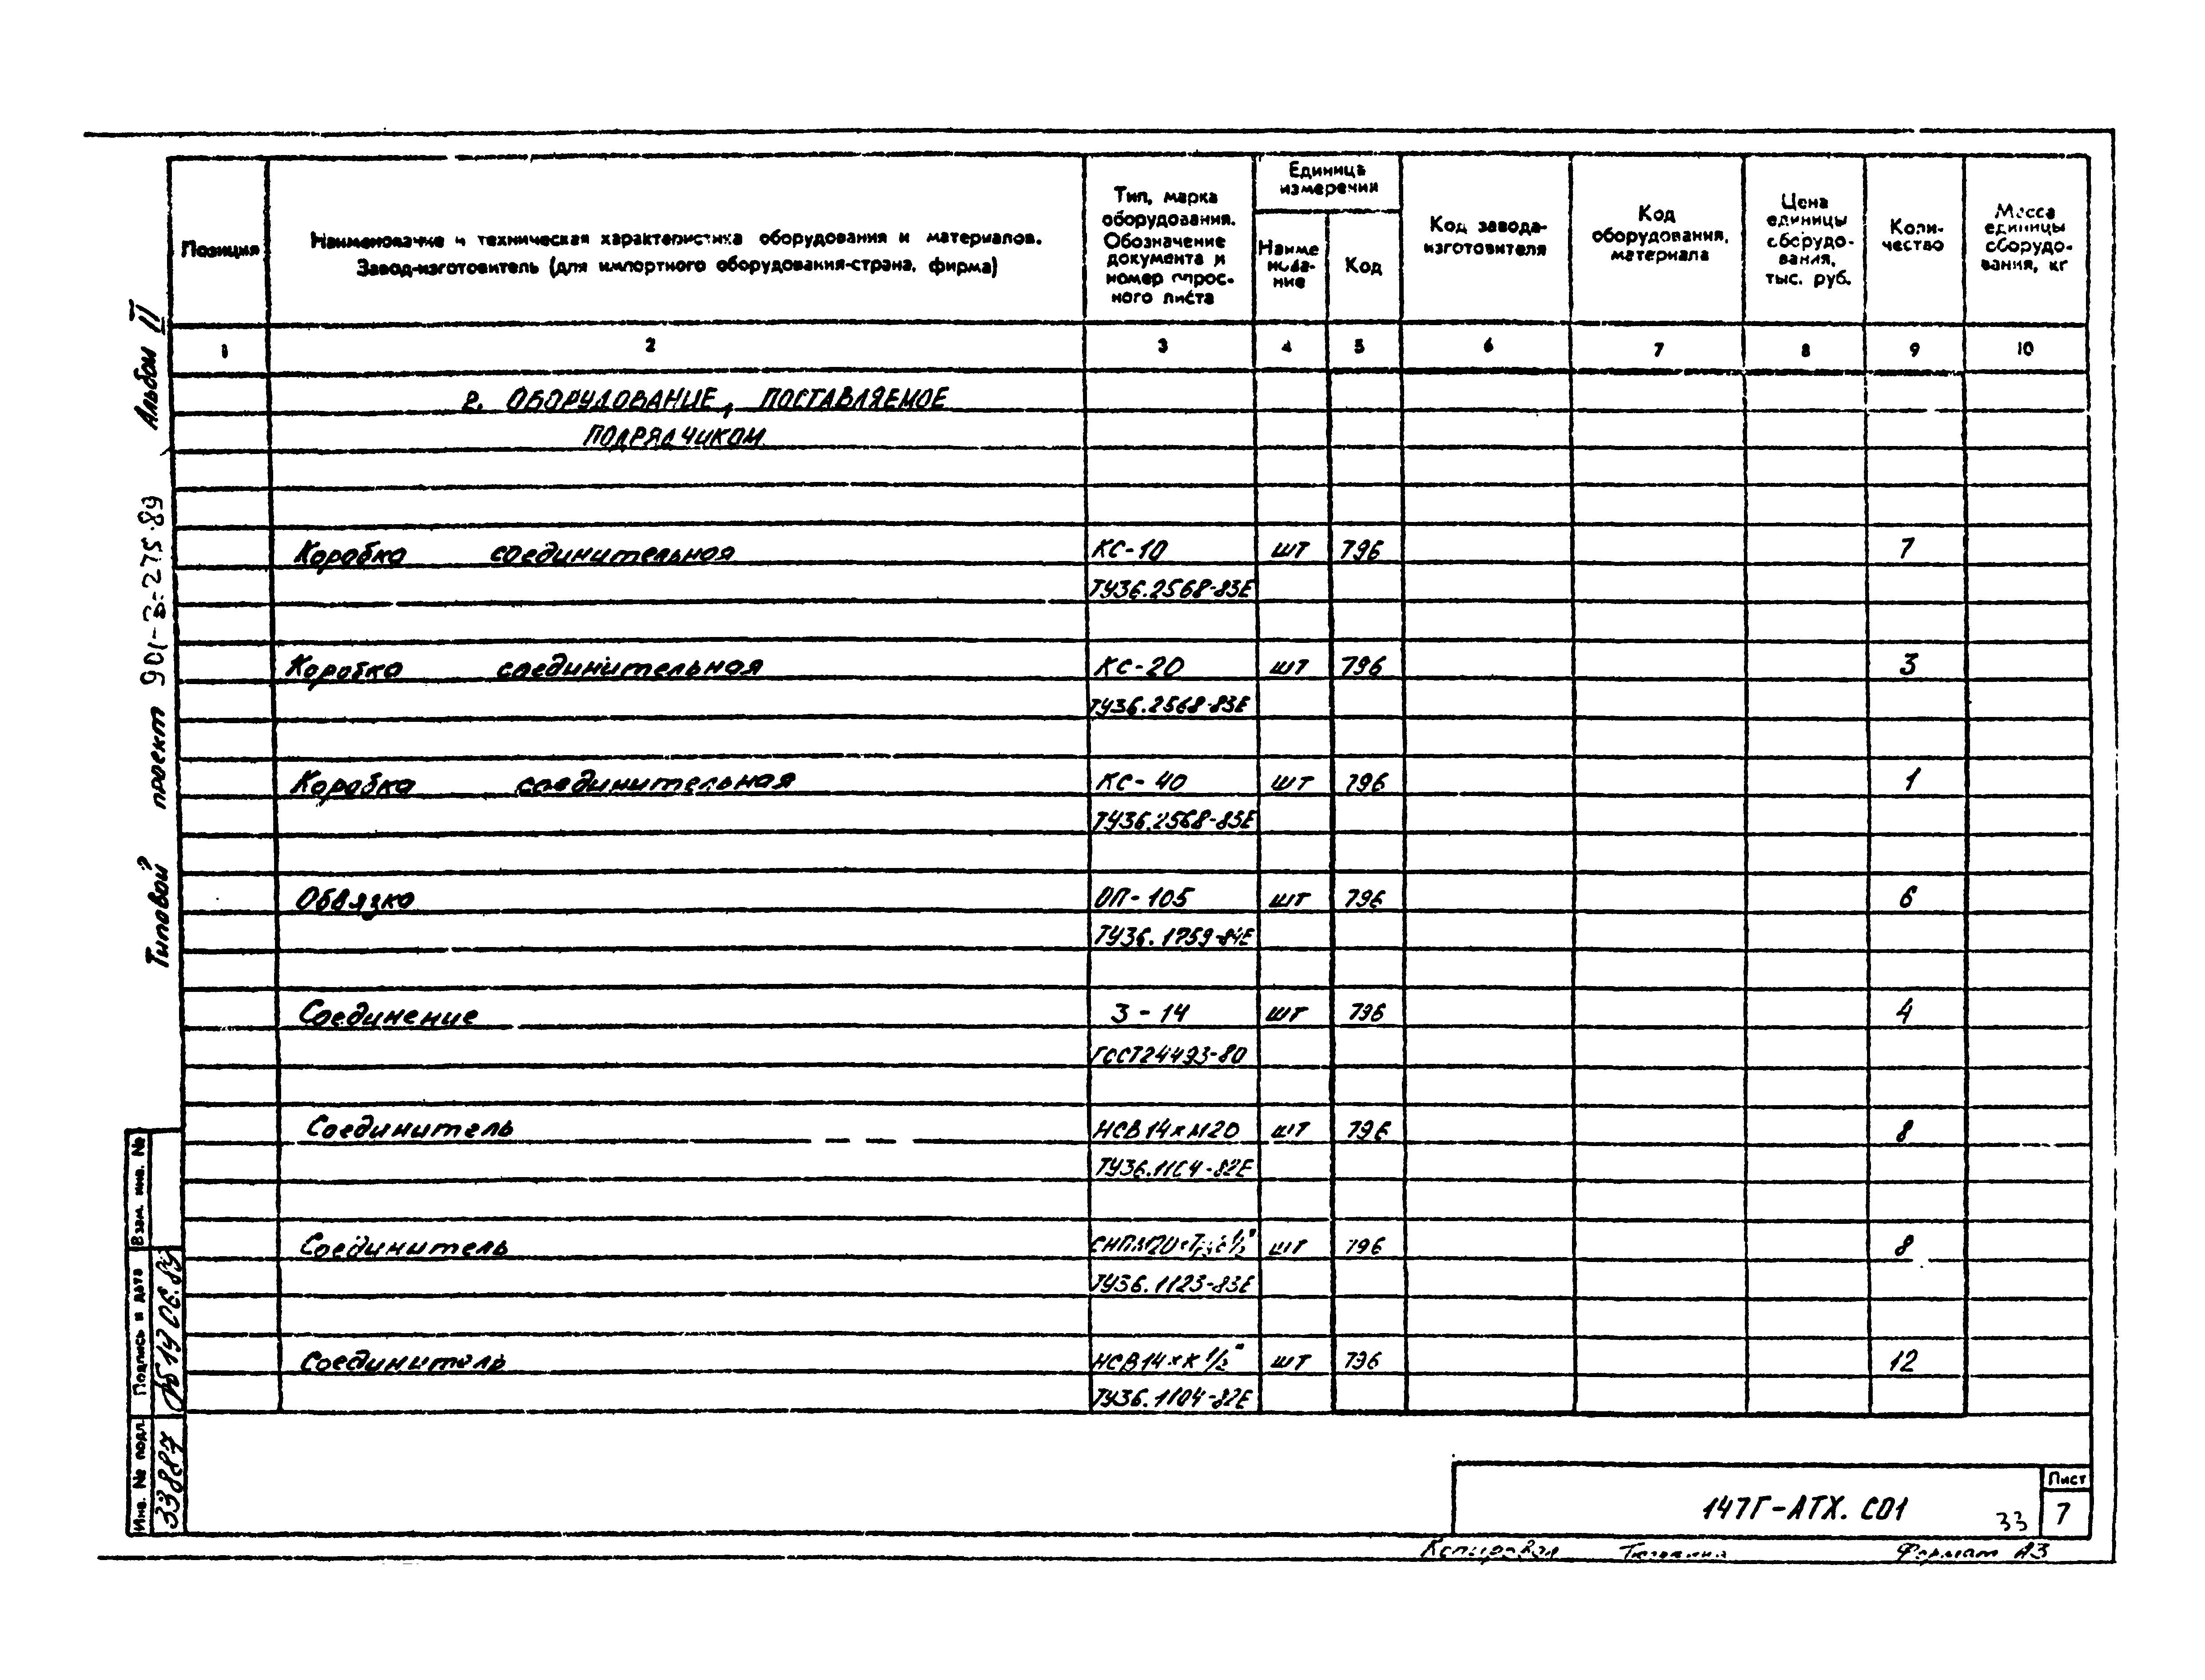 Позиция
Наименование и техническая характеристика оборудования и материалов.
Завод-изготовитель (для импортного оборудования-страна, фирма)
Тип, марка
оборудования.
Обозначение
документа и
номер опрос-
ного листа
Единица
измерения
Наиме
нова-
ние
Код
Код завода-
изготовителя
Код
оборудования,
материала
Цена
единицы
оборудо-
вания,
тыс. руб.
Коли-
чество
Масса
единицы
оборудо-
вания, кг
1 2 3 4 5 6 7 8 9 10
2. ОБОРУДОВАНИЕ, ПОСТАВЛЯЕМОЕ
ПОДРЯДЧИКОМ
Коробка соединительная КС-10 шт 796 7
ТУ36.2568-83Е
Коробка соединительная КС-20 шт 796 3
ТУ36.2568-83Е
Коробка соединительная КС-40 шт 796 1
ТУ36.2568-83Е
Обвязка ОП-105 шт 796 6
ТУ36.1759-84Е
Соединение 3-14 шт 796 4
ГОСТ24493-80
Соединитель НСВ14хМ20 шт 796 8
ТУ36.1104-82Е
Соединитель шт 796 8
ТУ36.1123-83Е
Соединитель НСВ14хК1/2" шт 796 12
ТУ36.1104-82Е
Типовой проект 901-3-275.89 Альбом II
Взам. инв. №
Подпись и дата
06.89
Инв. № подл
33887
147Г-АТХ. СО1
33
Лист
7
Копировал
Формат А3